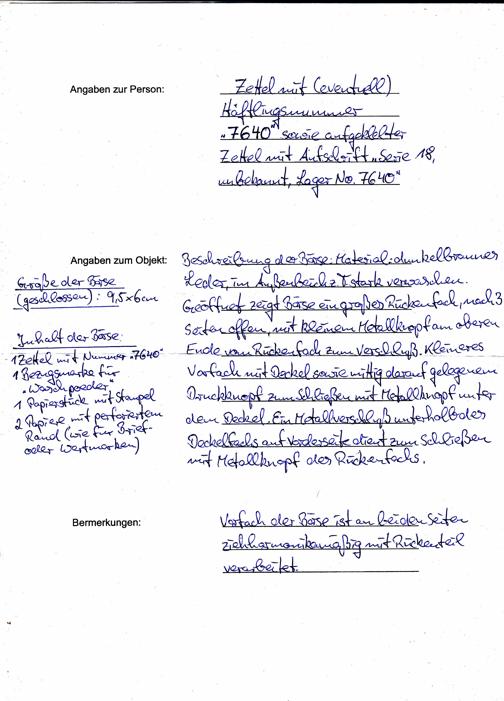 Angaben zur Person:
Zettel mit (eventuell)
Häftlingsnummer
„7640“ sowie aufgeklebter
Zettel mit Aufschrift „Serie 18,
unbekannt, Lager No. 7640“
Angaben zum Objekt:
Beschreibung der Börse: Material: dunkelbraunes
Leder, im Außenbereich z T stark verwaschen.
Geöffnet zeigt Börse ein großes Rückenfach, nach 3
Seiten offen, mit kleinem Metallknopf am oberen
Ende vom Rückenfach zum Verschluß. Kleineres
Vorfach mit Deckel sowie mittig darauf gelegenem
Druckknopf zum Schließen mit Metallknopf unter
dem Deckel. Ein Metallverschluß unterhalb des
Deckelfachs auf Vorderseite dient zum Schließen
mit Metallknopf des Rückenfachs.
Größe der Börse
(geschlossen): 9,5x6cm
Inhalt der Börse:
1 Zettel mit Nummer „7640“
1 Bezugsmarke für
„Waschpoeder“
1 Papierstück mit Stempel
2 Papiere mit perforiertem
Rand (wie für Brief-
oder Wertmarken)
Bermerkungen:
Vorfach der Börse ist an beiden Seiten
ziehharmonikamäßig mit Rückenteil
verarbeitet.